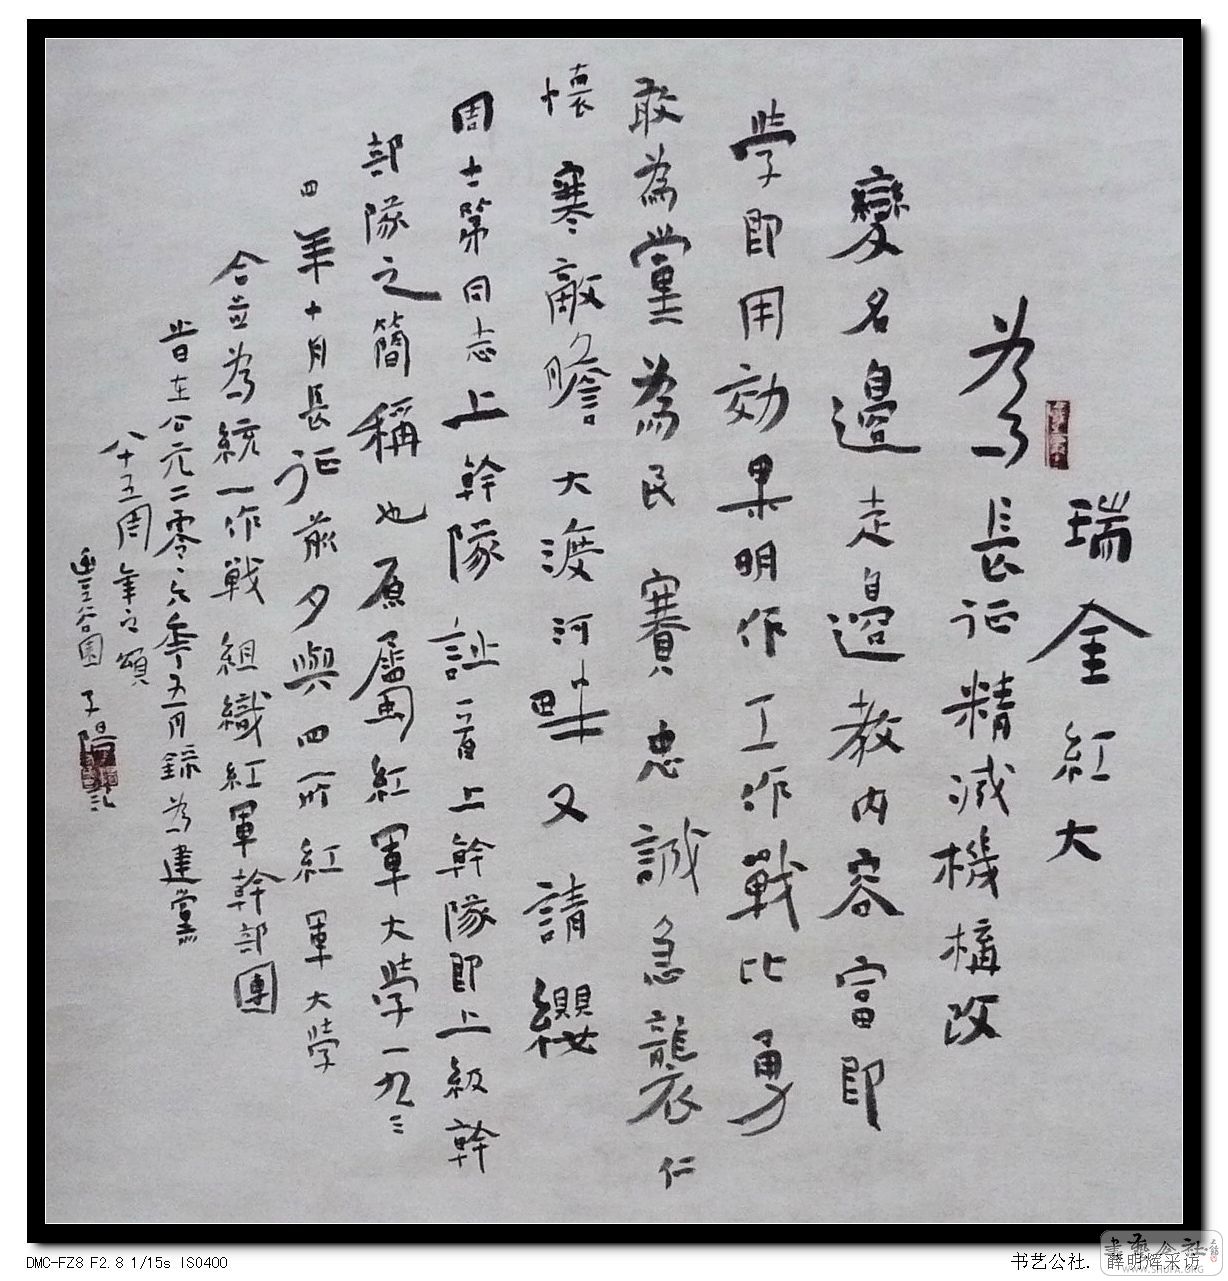 瑞金紅大
為長征精减機構改
變名邊走邊教内容富即
學即用効果明作工作戰比勇
敢為黨為民賽忠誠急襲仁
懷寒敵膽大渡河畔又請纓
周士第同志上幹隊 註一首上幹隊即上級幹
部隊之簡稱也原屬紅軍大學一九三
四年十月長征前夕與四所紅軍大學
合並為統一作戰組織紅軍幹部團
昔在公元二零零六年五月錄為建黨
八十五周年之頌
豐谷園 子陽 記
DMC-FZ8 F2.8 1/15s ISO400
书艺公社. 薛明辉采访
書藝公社
www.shufa.org